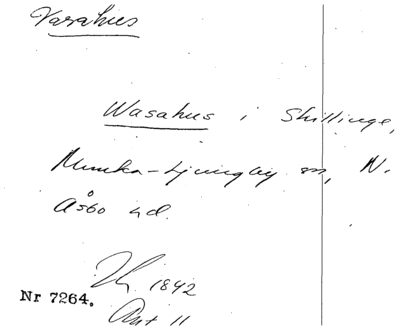 Vasahus
Wasahus i Skillinge,
Munka-Ljungby sn, N.
Åsbo hd.
1842
Nr 7264.
Avt 11